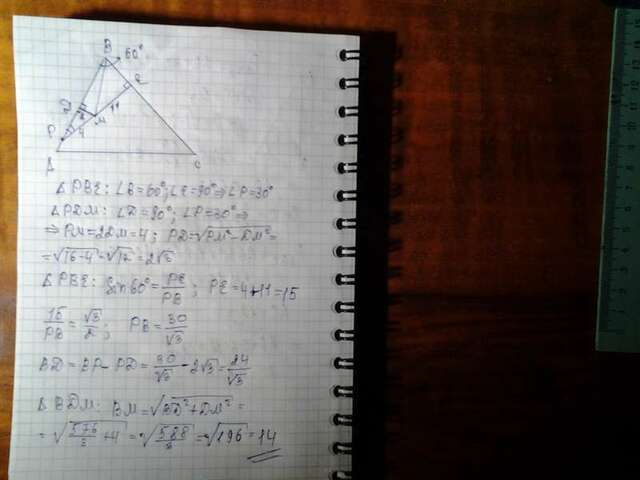 B 60°
E
D
11
M
P 4
A C
Δ PBE: ∠B=60°; ∠E=90° ⇒ ∠P=30°
Δ PDM: ∠D=90°; ∠P=30° ⇒
⇒ PM=2DM=4; PD=√PM²-DM²=
=√16-4=√12=2√3
Δ PBE: Sin60°=PE/PB; PE=4+11=15
15/PB=√3/2; PB=30/√3
BD=BP-PD=30/√3-2√3=24/√3
Δ BDM: BM=√BD²+DM²=
=√576/3+4=√588/3=√196=14